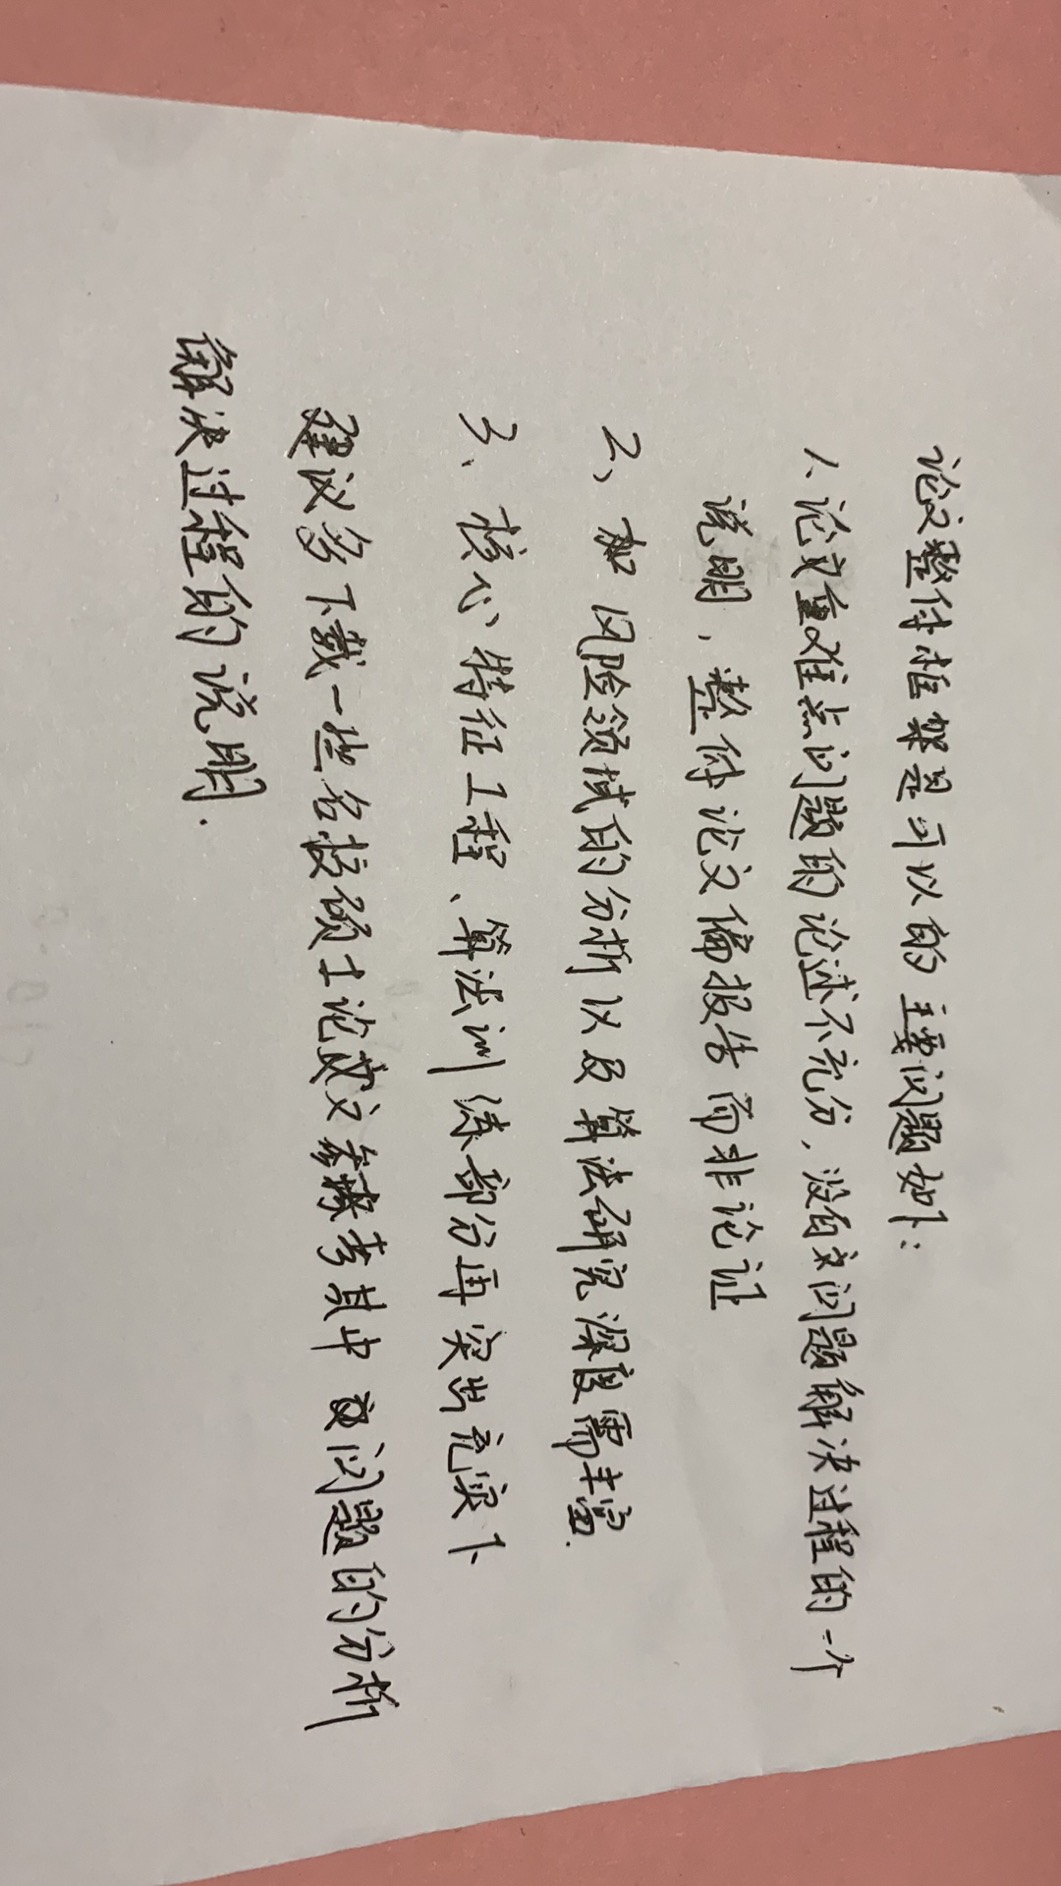 论文整体框架是可以的 主要问题如下:
1、论文重难点问题的论述不充分, 没有对问题解决过程的一个
说明, 整体论文偏报告而非论证
2、加 风险领域的分析以及算法研究深度需丰富.
3、核心特征工程、算法训练部分再突出充实下
建议多下载一些名校硕士论文参考其中对问题的分析
解决过程的说明.